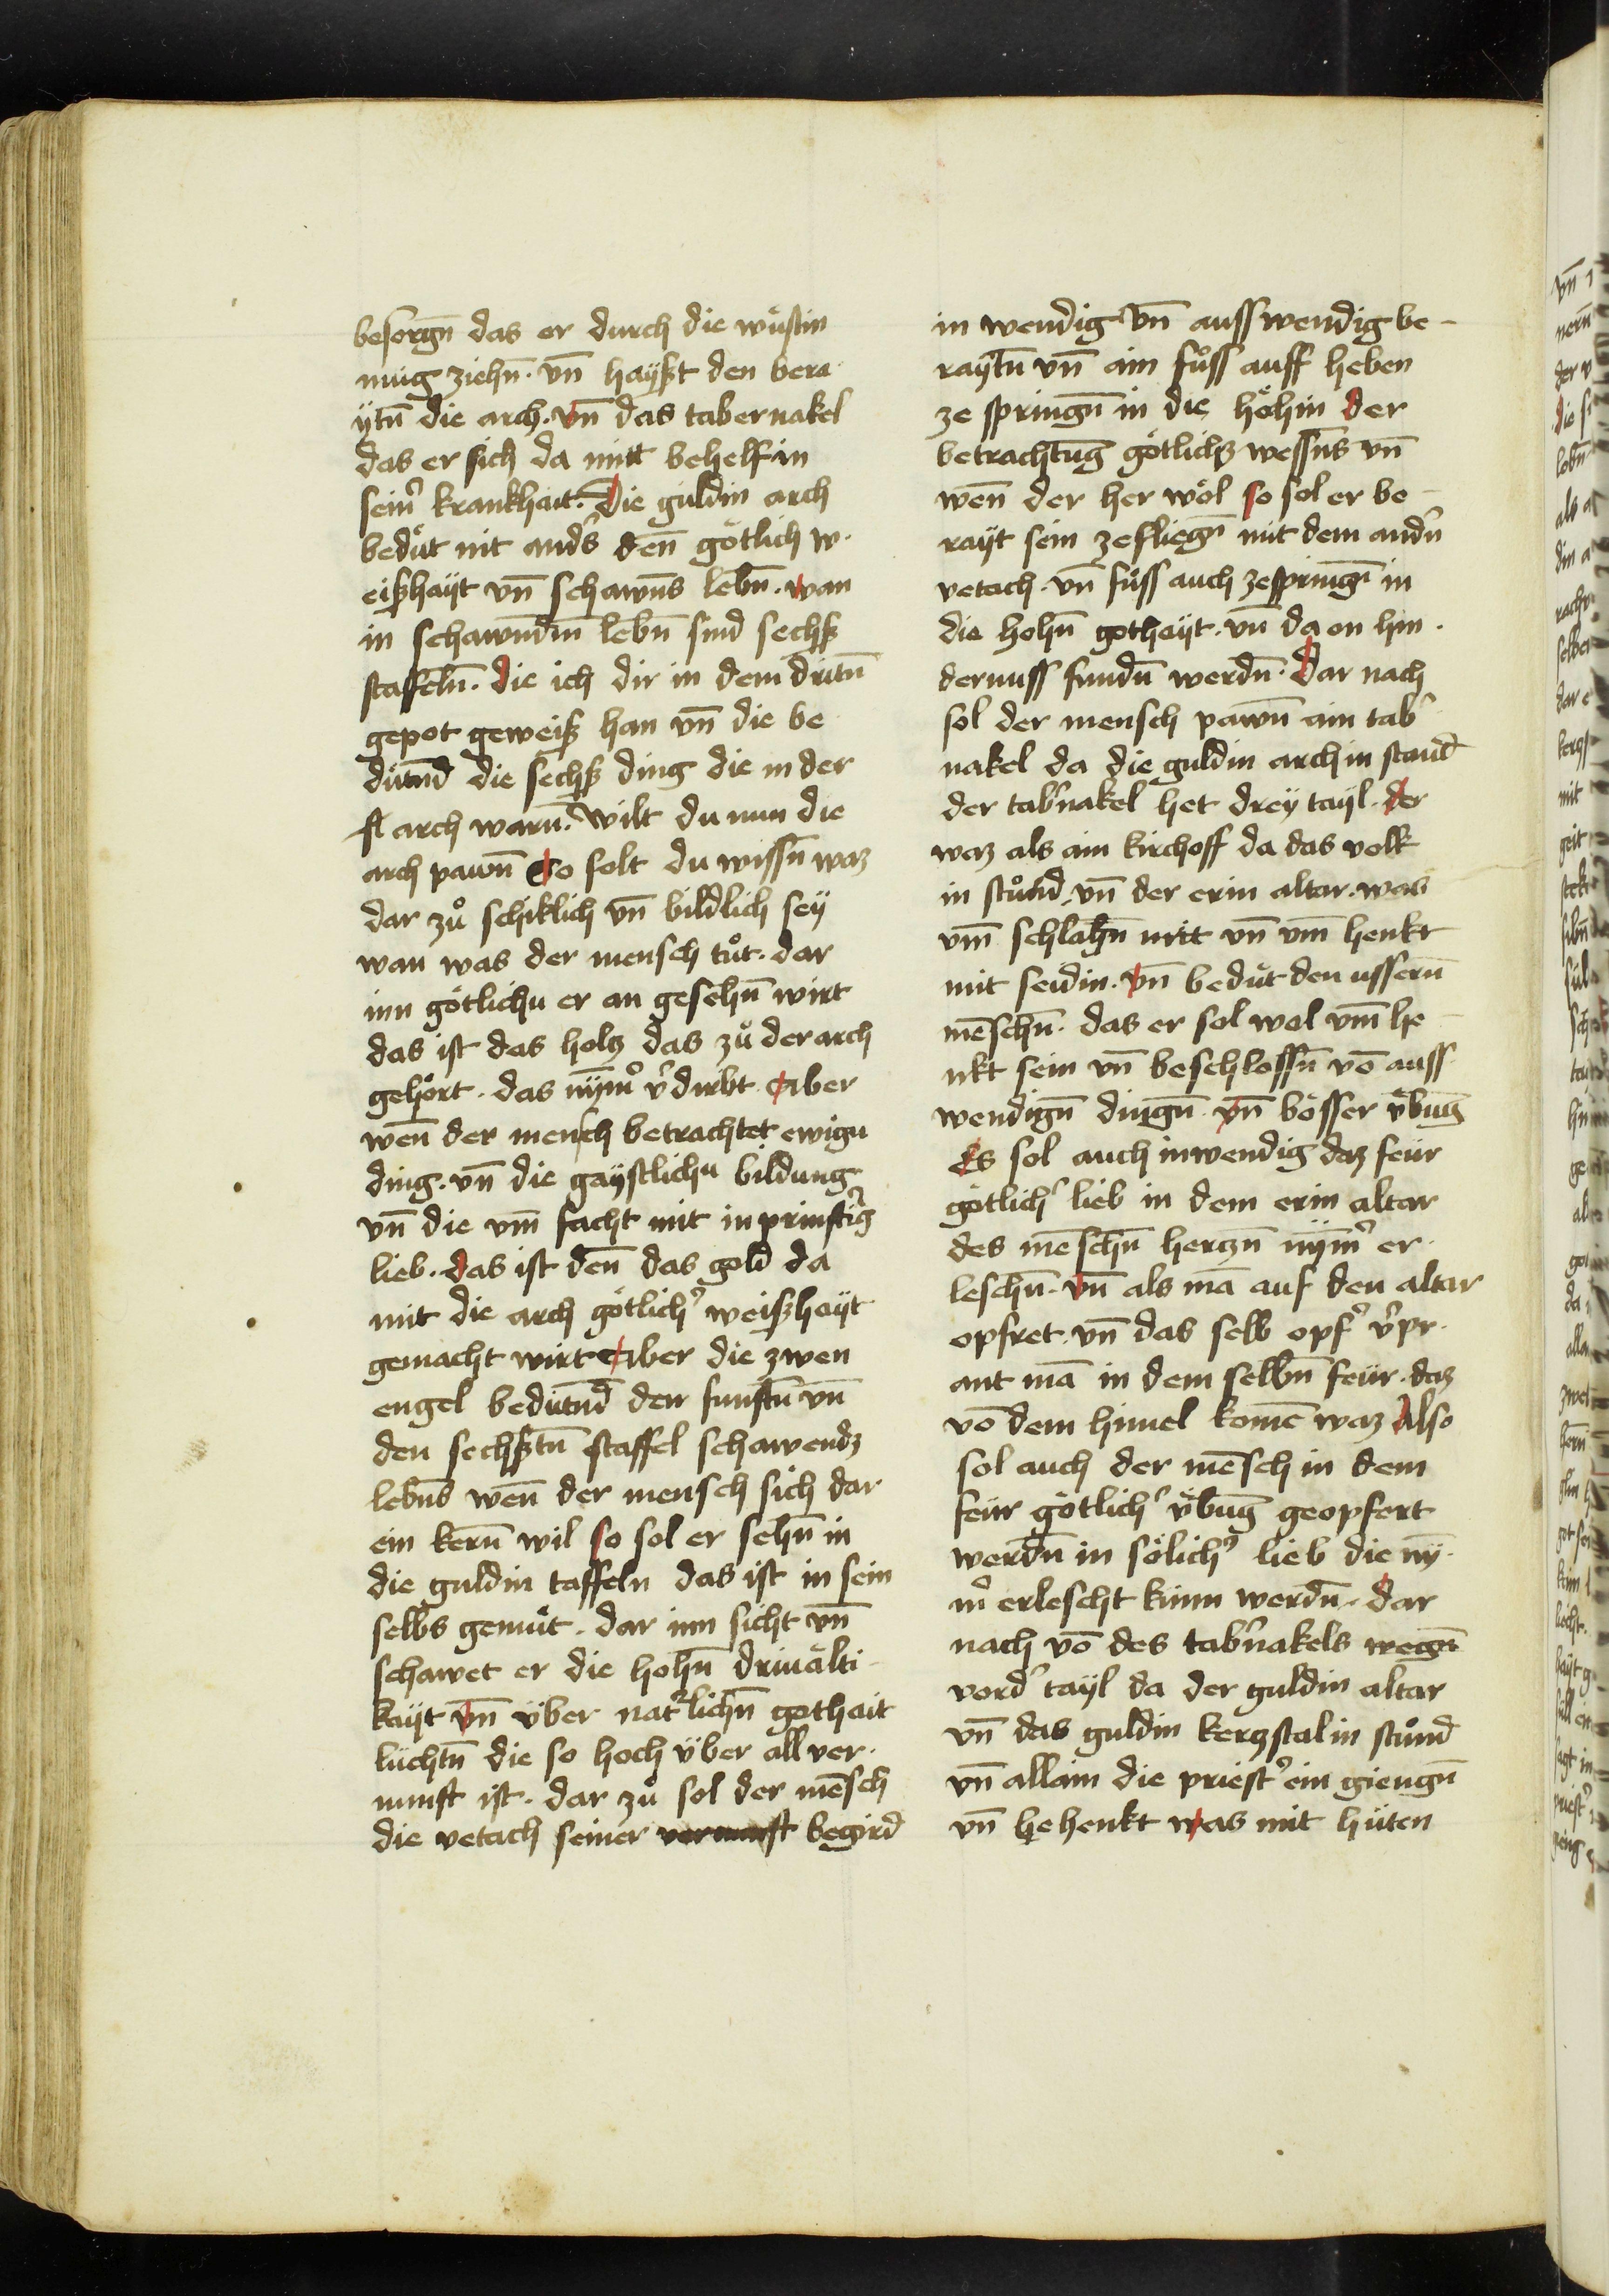 besorgn̄ das er durch die wuͤstin
nuig ziehn̄. vn̄ hayßt den bera
ytn̄ die arch. vn̄ das tabernakel
das er sich da mitt behelf in
sein᷑ krankhait. Die guldin arch
beduͤt nit and᷑s den̄ goͤtlich w.
eißhayt vn̄ schawn̄s lebn̄. wan
in schawndīn lebn̄ sind sechß
staffeln̄. die ich dir in dem dritn̄
gepot geweiß han vn̄ die be
duͤtnd die sechß ding die in der
fl arch warn̄. Wilt du nun die
arch pawn̄ So solt du wissn̄ waz
dar zuͦ schiklich vn̄ bildlich sey
wan was der mensch tuͦt. dar
inn goͤtlichu er an gesehn̄ wirt
das ist das holtz das zuͦ der arch
gehoͤrt. das nȳm᷑ v᷑dirbt. Aber
wen̄ der mensch betrachtet ewigu
ding. vn̄ die gaystlichu bildung
vn̄ die vm̄ facht mit inprinstig᷑
lieb. das ist den̄ das gold da
mit die arch goͤtlich᷑ weißhayt
gemacht wirt Aber die zwen
engel bedutnd den funftn̄ vn̄
den sechßtn̄ staffel schawendz
lebn̄s wen̄ der mensch sich dar
ein kern̄ wil so sol er sehn̄ in
die guldin taffeln das ist in sein
selbs gemuͤt. dar inn sicht vn̄
schawet er die hohn̄ driualti
kayt vn̄ vͤber nat᷑lichn̄ gothait
luͤchtn̄ die so hoch vͤber all ver.
nunft ist. dar zuͦ sol der mēsch
die vetach seiner vernunft begird
in wendig vn̄ ausswendig be-
raytn̄ vn̄ ain fuͦss auff heben
ze springn̄ in die hoͤhin der
betrachtūg goͤtlichz wessn̄s vn̄
wen̄ der her woͤl so sol er be-
rayt sein zefliegn̄ mit dem and᷑n
vetach. vn̄ fuͦss auch zespringn̄ in
die hohn̄ gothayt. vn̄ da on hin.
dernuss fundn̄ werdn̄. Dar nach
sol der mensch pawn̄ ain tab᷑
nakel da die guldin arch in stand
der tab᷑nakel het drey tayl. der
waz als ain kirchoff da das volk
in stuͦnd. vn̄ der erin altar. was
vm̄ schlahn̄ mit vn̄ vm̄ henkt
mit seidin. vn̄ beduͤt den ussern̄
mēschn̄. das er sol wol vm̄ he-
nkt sein vn̄ beschlossn̄ vō auss
wendign̄ dingn̄ vn̄ boͤsser vͤbūg
Es sol auch inwendig daz feuͤr
goͤtlich᷑ lieb in dem erin altar
des mēschn̄ herzn̄ nȳm᷑ er.
leschn̄. vn̄ als mā auf den altar
opfret. vn̄ das selb opf᷑ v᷑pr.
ant mā in dem selbn̄ feuͤr. daz
vō dem himel komē waz Also
sol auch der mēsch in dem
feuͤr goͤtlich᷑ vͤbūg geopfert
werdn̄ in soͤlich᷑ lieb die nȳ.
m᷑ erlescht kunn werdn̄. dar
nach vō des tab᷑nakels wegn̄
vord᷑ tayl da der guldin altar
vn̄ das guldin kerzstal in stuͦnd
vn̄ allain die priest᷑ ein giengn̄
vn̄ behenkt was mit huͤten